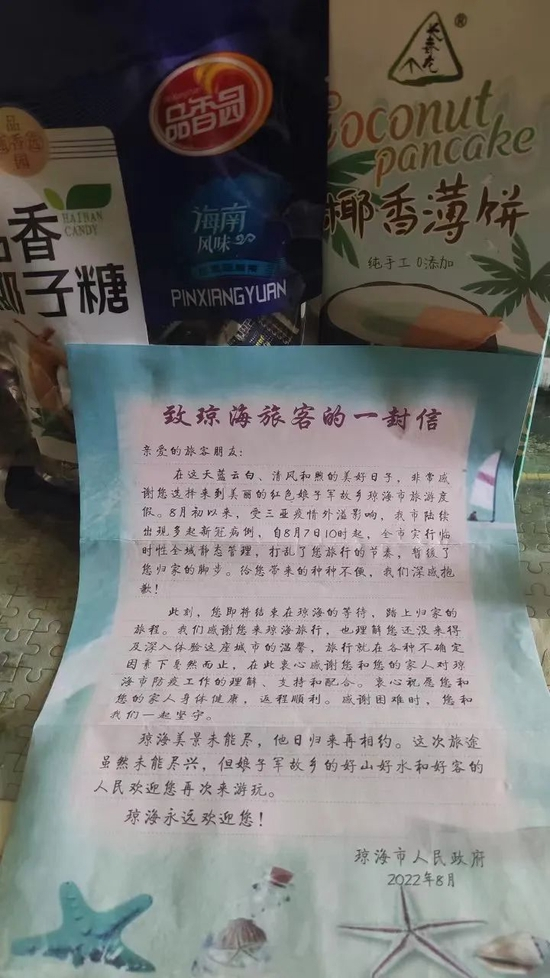 长寿花
®
Coconut
pancake
椰香薄饼
纯手工 0添加
品香园
海南
风味
PINXIANGYUAN
HAINAN
CANDY
品香
椰子糖
致琼海旅客的一封信
亲爱的旅客朋友:
在这天蓝云白、清风和煦的美好日子,非常感
谢您选择来到美丽的红色娘子军故乡琼海市旅游度
假。8月初以来,受三亚疫情外溢影响,我市陆续
出现多起新冠病例,自8月7日10时起,全市实行临
时性全域静态管理,打乱了您旅行的节奏,暂缓了
您归家的脚步。给您带来的种种不便,我们深感抱
歉!
此刻,您即将结束在琼海的等待,踏上归家的
旅程。我们感谢您来琼海旅行,也理解您还没来得
及深入体验这座城市的温馨,旅行就在各种不确定
因素下戛然而止,在此衷心感谢您和您的家人对琼
海市防疫工作的理解、支持和配合。衷心祝愿您和
您的家人身体健康,返程顺利。感谢困难时,您和
我们一起坚守。
琼海美景未能尽,他日归来再相约。这次旅途
虽然未能尽兴,但娘子军故乡的好山好水和好客的
人民欢迎您再次来游玩。
琼海永远欢迎您!
琼海市人民政府
2022年8月